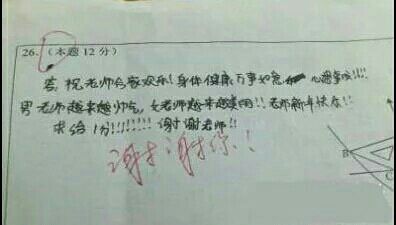 26.（本题12分）
答 祝老师合家欢乐！身体健康 万事如意 心想事成!!!!
男老师越来越帅气，女老师越来越美丽!!老师新年快乐!!
求给1分!!!!!!!!谢谢老师!!
谢谢你！！
B